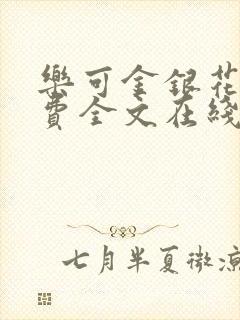 樂可金銀花
費全文在綫
七月半夏微涼